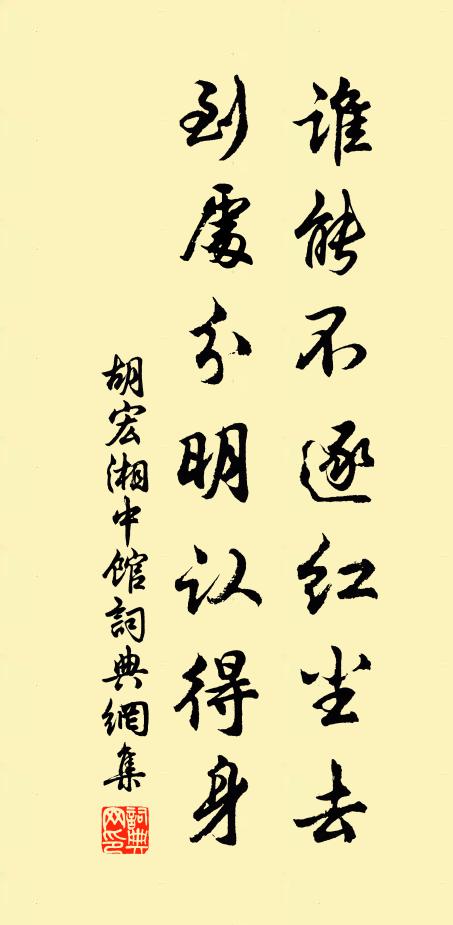 谁能不逐红尘去
到處分明认得身
胡宏湘中馆詞典網集
詞典網印